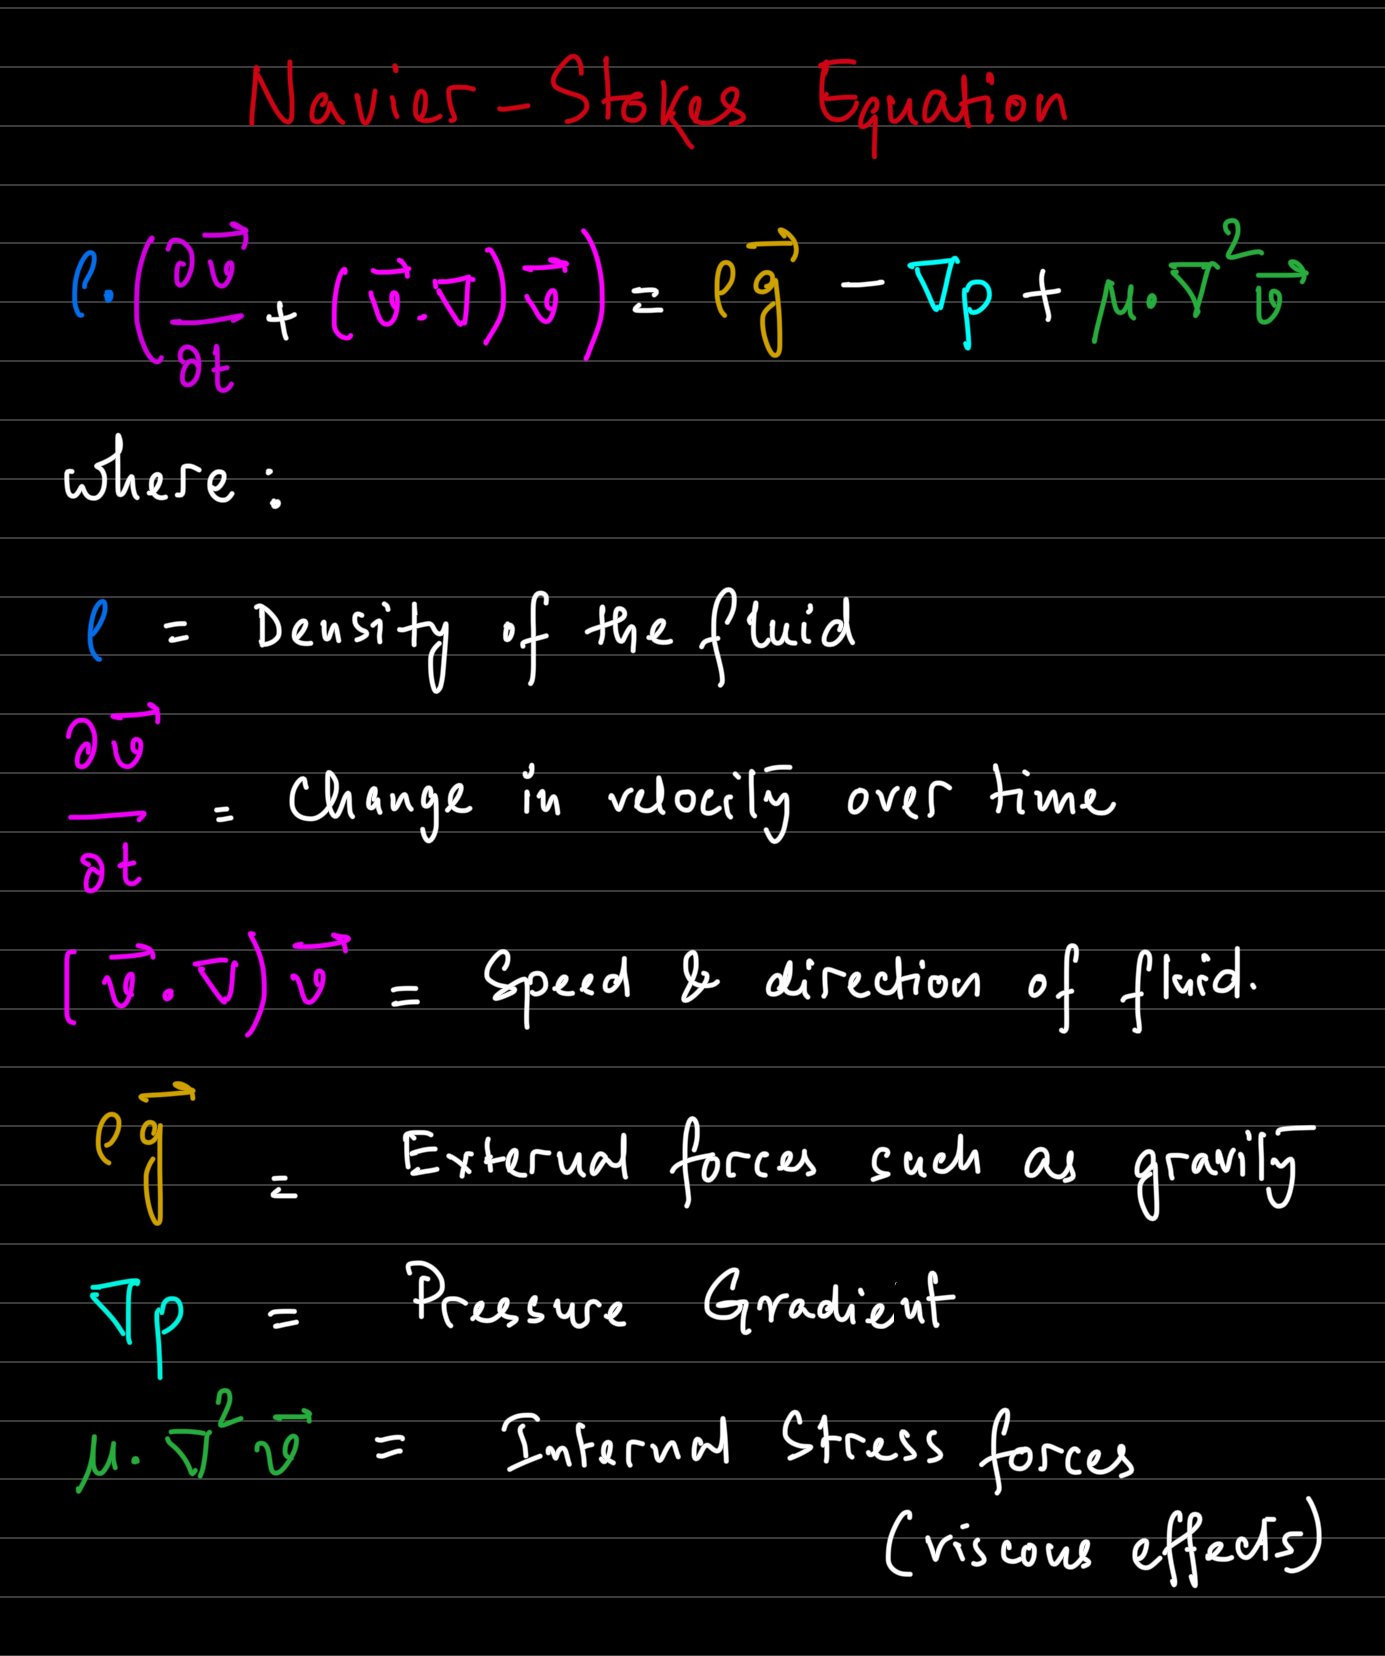 Navier-Stokes Equation
ρ·(∂v⃗/∂t + (v⃗.∇)v⃗) = ρg⃗ - ∇p + μ·∇²v⃗
where:
ρ = Density of the fluid
∂v⃗/∂t = Change in velocity over time
(v⃗.∇)v⃗ = Speed & direction of fluid.
ρg⃗ = External forces such as gravity
∇p = Pressure Gradient
μ·∇²v⃗ = Internal Stress forces
(viscous effects)